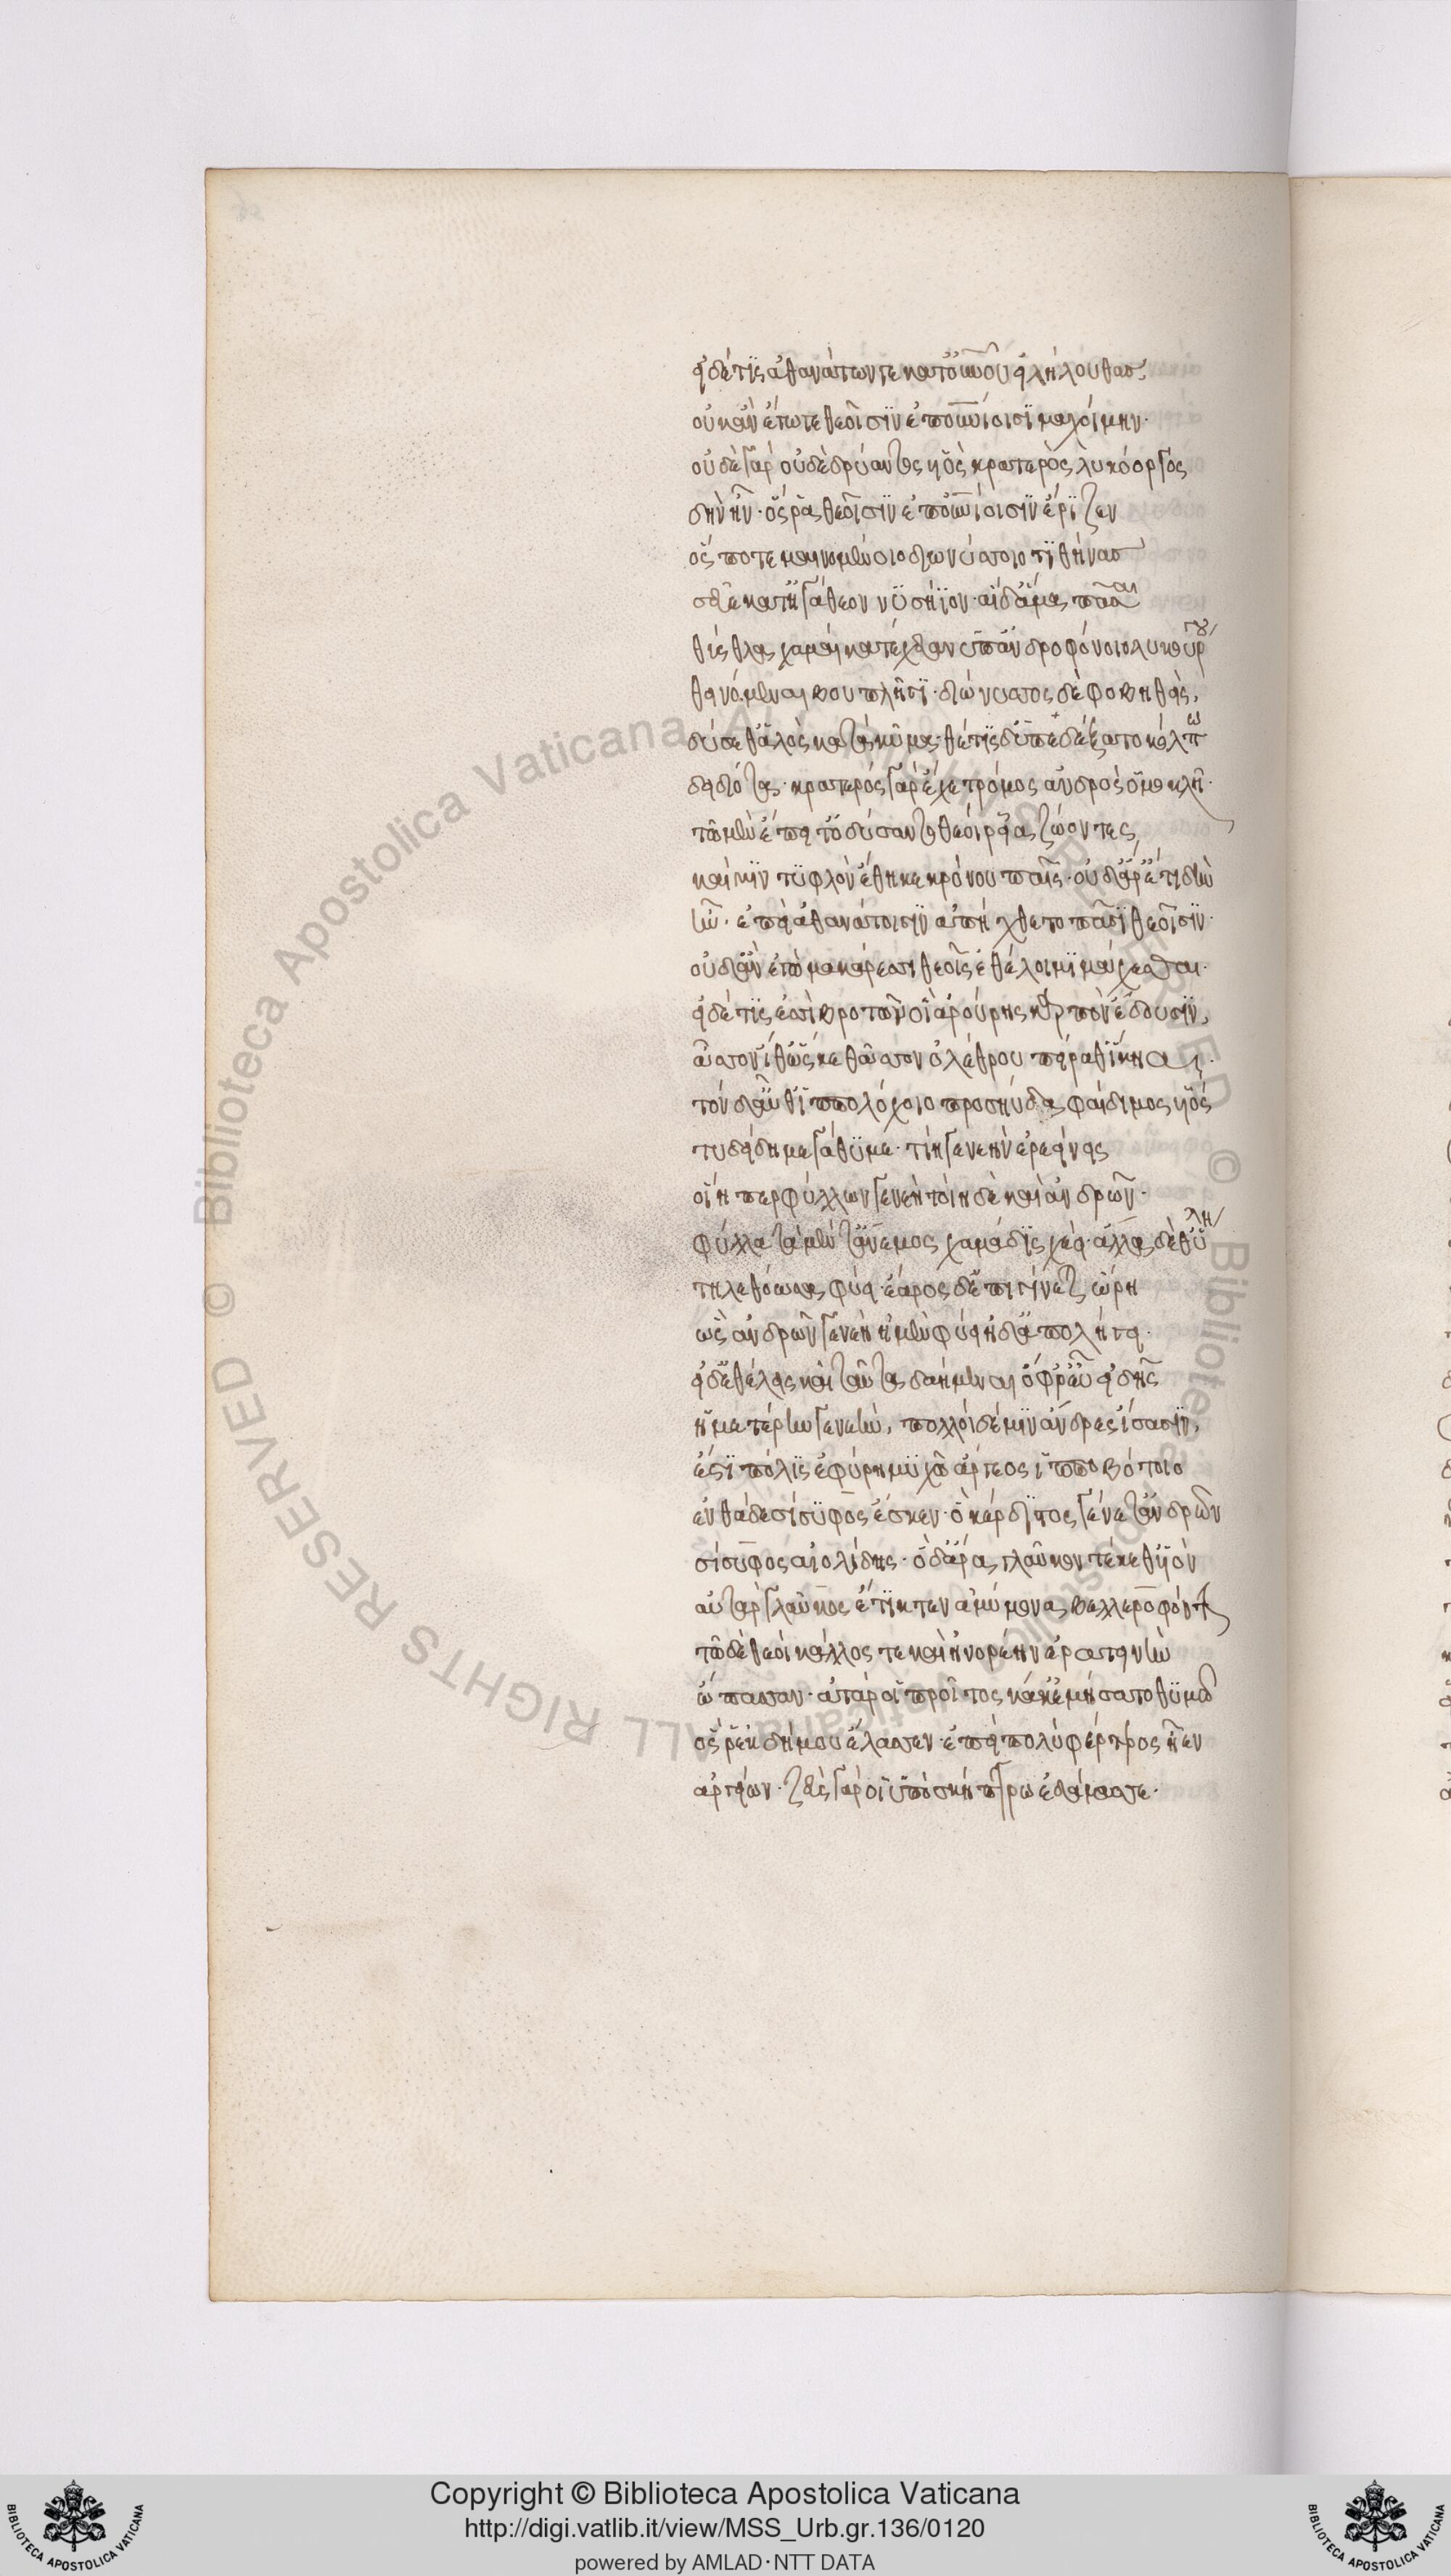 εἰ δέ τις ἀθανάτων γε κατ' οὐρανοῦ εἰλήλουθας
οὐκ ἂν ἔγωγε θεοῖσιν ἐπουρανίοισι μαχοίμην·
οὐδὲ γὰρ οὐδὲ δρύαντος υἱὸς κρατερὸς λυκόοργος
δὴν ἦν· ὅς ῥα θεοῖσιν ἐπουρανίοισιν ἔριζεν
ὅς ποτε μαινομένοιο διωνύσοιο τιθήνας
σεῦε κατ' ἠγάθεον νυσήϊον· αἱ δ' ἅμα πᾶσαι
θύσθλα χαμαὶ κατέχευαν ὑπ' ἀνδροφόνοιο λυκούργου
θεινόμεναι βουπλῆγι· διώνυσος δὲ φοβηθεὶς,
δύσεθ' ἁλὸς κατὰ κῦμα· θέτις δ' ὑπεδέξατο κόλπω
δειδιότα· κρατερὸς γὰρ ἔχε τρόμος ἀνδρὸς ὁμοκλῆ·
τῶ μὲν ἔπειτ' ὀδύσαντο θεοὶ ῥεῖα ζώοντες,
καί μιν τυφλὸν ἔθηκε κρόνου παῖς· οὐδ' ἄρ' ἔτι δὴν
ἦν· ἐπεὶ ἀθανάτοισιν ἀπήχθετο πᾶσι θεοῖσιν·
οὐδ' ἂν ἐγὼ μακάρεσσι θεοῖς ἐθέλοιμι μάχεσθαι·
εἰ δέ τις ἐσσὶ βροτῶν οἳ ἀρούρης καρπὸν ἔδουσιν,
ἆσσον ἴθ' ὥς κε θᾶσσον ὀλέθρου πείραθ' ἵκηαι·
τὸν δ' αὖθ' ἱππολόχοιο προσηύδα φαίδιμος υἱός
τυδείδη μεγάθυμε· τίη γενεὴν ἐρεείνεις
οἵη περ φύλλων γενεὴ τοίη δὲ καὶ ἀνδρῶν·
φύλλα τὰ μέν τ' ἄνεμος χαμάδις χέει· ἄλλα δέ θ' ὕλη
τηλεθόωσα φύει· ἔαρος δ' ἐπιγίνεται ὥρη
ὣς ἀνδρῶν γενεὴ ἡ μὲν φύει ἡ δ' ἀπολήγει·
εἰ δ' ἐθέλεις καὶ ταῦτα δαήμεναι ὄφρ' εὖ εἰδῆς
ἡμετέρην γενεὴν, πολλοὶ δέ μιν ἄνδρες ἴσασιν,
ἔστι πόλις ἐφύρη μυχῶ ἄργεος ἱπποβότοιο
ἐνθάδε σίσυφος ἔσκεν· ὃ κέρδιστος γένετ' ἀνδρῶν
σίσυφος αἰολίδης· ὁ δ' ἄρα γλαῦκον τέκεθ' υἱόν
αὐτὰρ γλαῦκος ἔτικτεν ἀμύμονα βελλεροφόντην
τῶ δὲ θεοὶ κάλλος τε καὶ ἠνορέην ἐρατεινὴν
ὤπασαν· αὐτάρ οἱ προῖτος κάκ' ἐμήσατο θυμῶ
ὅς ῥ' ἐκ δήμου ἔλασσεν· ἐπεὶ πολὺ φέρτερος ἦεν
ἀργείων· ζεὺς γάρ οἱ ὑπὸ σκήπτρω ἐδάμασσε·
Copyright © Biblioteca Apostolica Vaticana
http://digi.vatlib.it/view/MSS_Urb.gr.136/0120
powered by AMLAD·NTT DATA